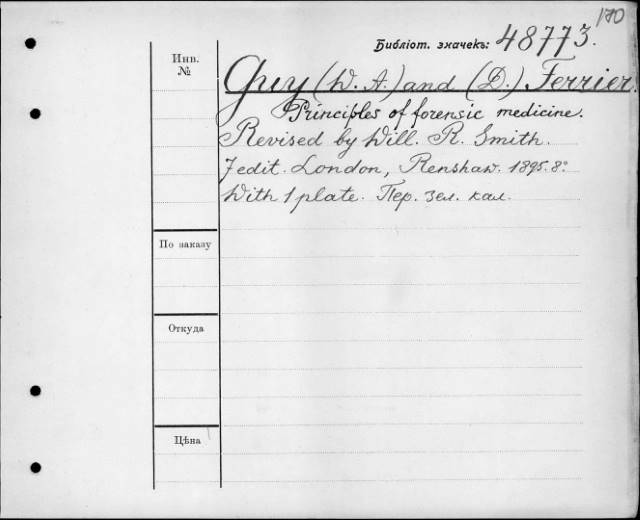 170
Библіот. значекъ: 48773.
Инв.
№
Guy (W. A.) and (D.) Ferrier.
Principles of forensic medicine.
Revised by Will. R. Smith.
7 edit. London, Renshaw. 1895. 8°
With 1 plate. Пер. зел. кал.
По заказу
Откуда
Цѣна